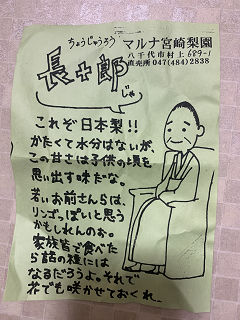 ちょうじゅうろう
長十郎
じゃ
マルナ宮崎梨園
八千代市村上689-1
直売所 047(484)2838
これぞ日本梨!!
かたくて水分はないが、
この甘さは子供の頃を
思い出す味だな。
若いお前さんらは、
リンゴっぽいと思う
かもしれんのぉ。
家族皆で食べた
ら話の種には
なるだろうよ。それで
花でも咲かせておくれ_